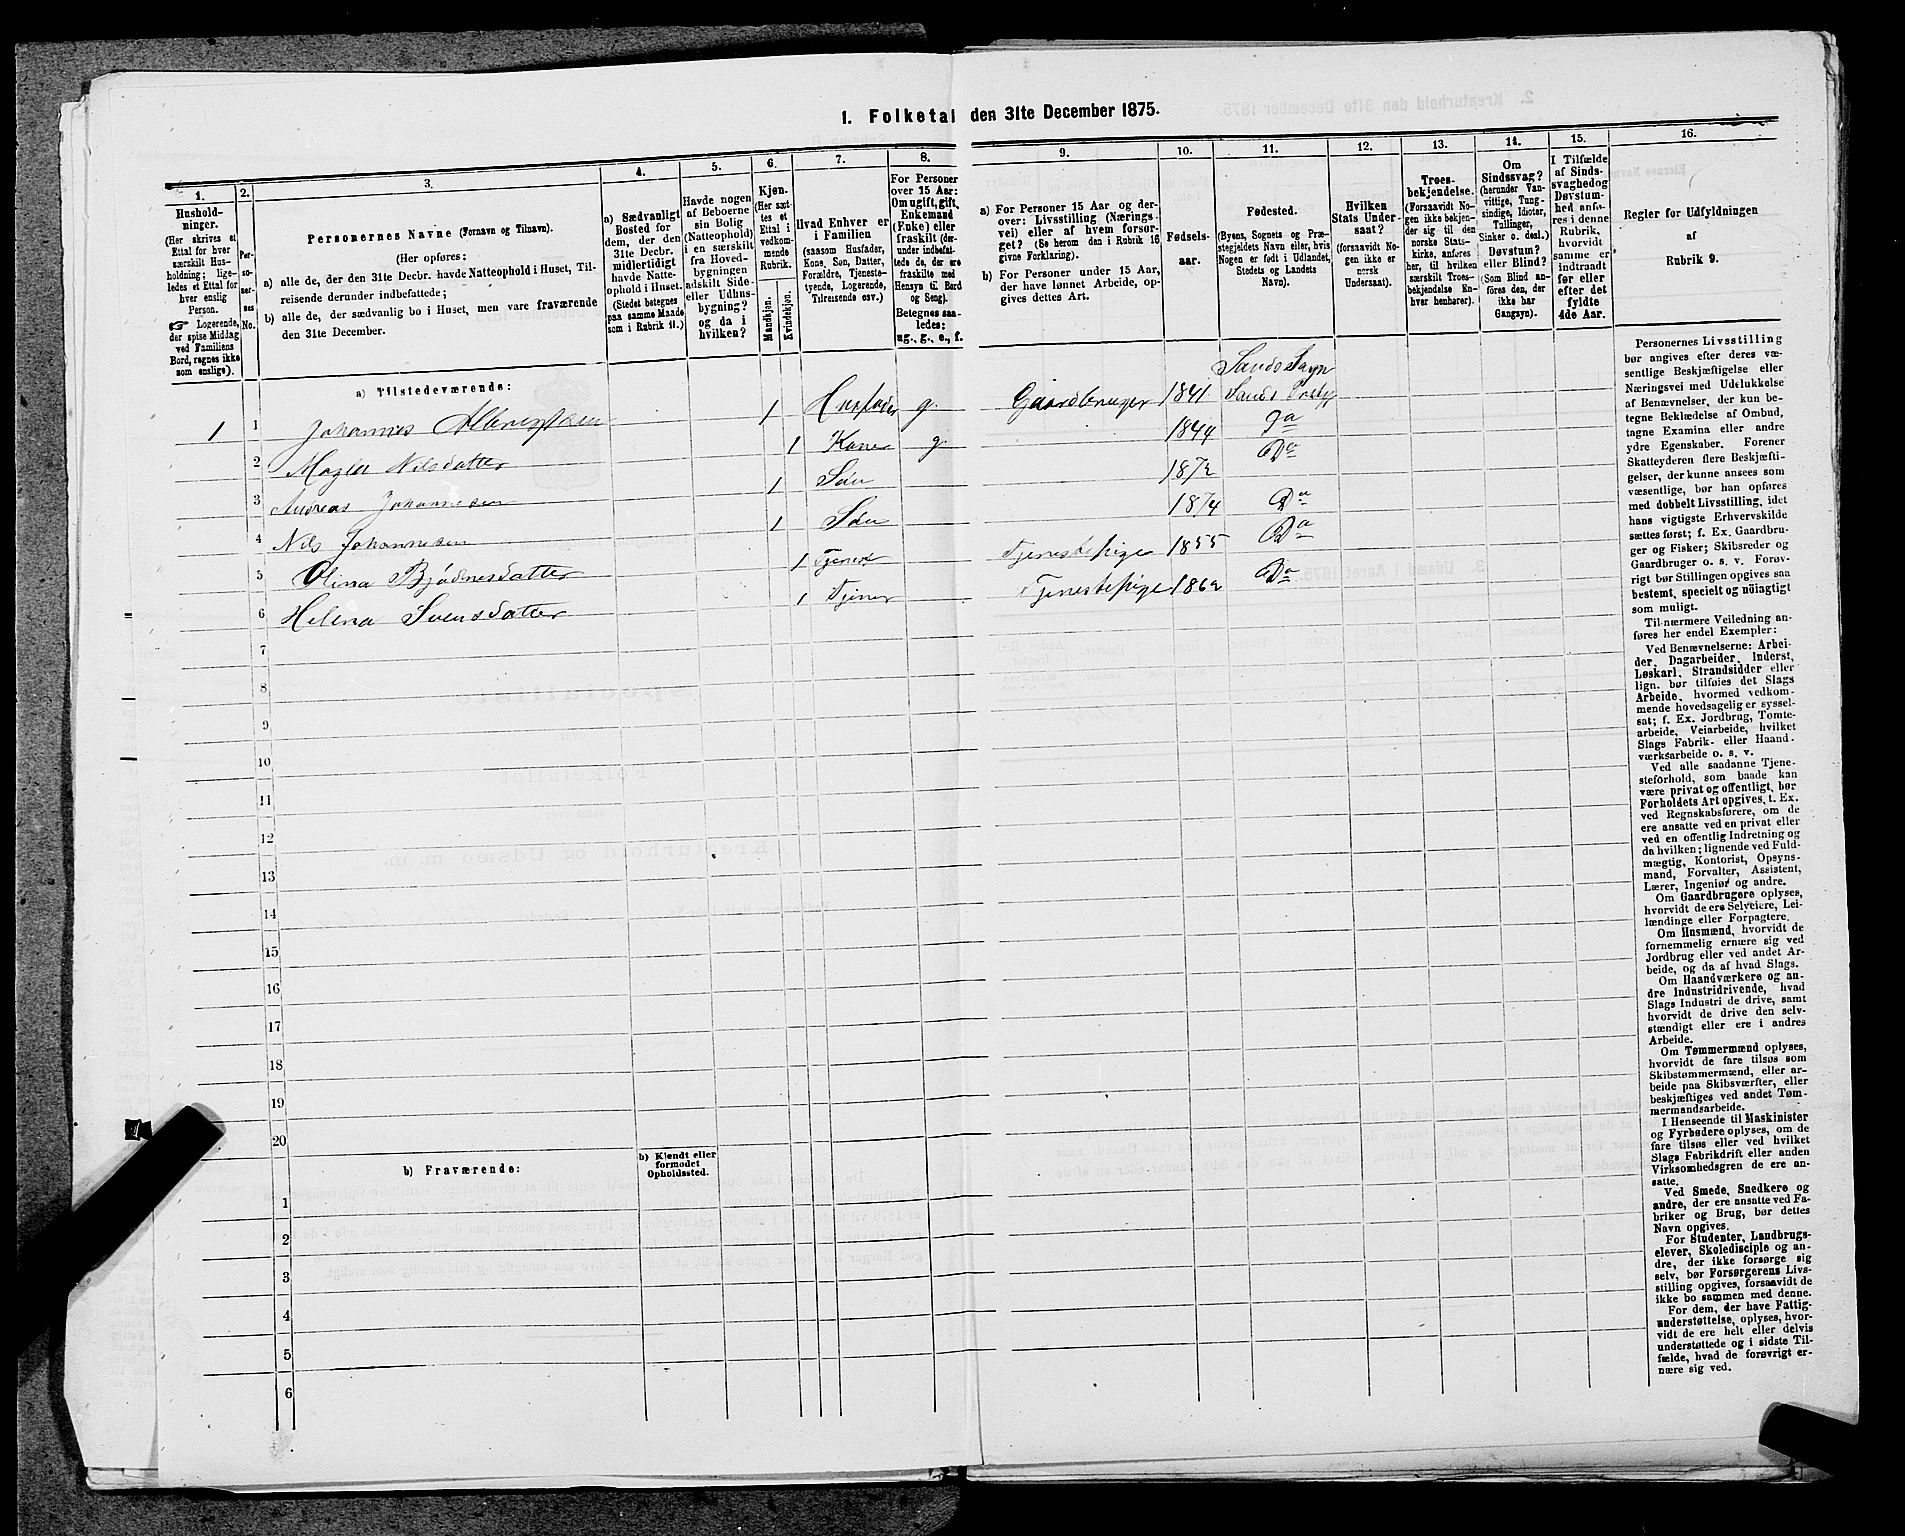 1. Folketal den 31te December 1875.
1.
2.
3.
4.
5.
6.
7.
8.
9.
10.
11.
12.
13.
14.
15.
16.
Husholdninger.
(Her skrives et
Ettal for hver
særskilt Husholdning;
ligeledes et Ettal for
hver enslig
Person.
☞ Logerende,
der spise Middag
ved Familiens
Bord, regnes ikke
som enslige).
Personernes No.
Personernes Navne (Fornavn og Tilnavn).
(Her opføres:
a) alle de, der den 31te Decbr. havde Natteophold i Huset, Tilreisende derunder indbefattede;
b) alle de, der sædvanlig bo i Huset, men vare fraværende
den 31te December.
a) Sædvanligt
Bosted for
dem, der den
31te Decbr.
midlertidigt
havde Natteophold i Huset.
(Stedet betegnes
paa samme Maade
som i Rubrik 11.)
Havde nogen
af Beboerne
sin Bolig
(Natteophold)
i en særskilt
fra Hovedbygningen
adskilt Side-
eller Udhusbygning?
og da i
hvilken?
Kjøn.
(Her sættes et
Ettal i
vedkommende
Rubrik.
Mandkjøn.
Kvindekjøn.
Hvad Enhver er
i Familien
(saasom Husfader,
Kone, Søn, Datter,
Forældre, Tjenestetyende, Logerende,
Tilreisende osv.)
For Personer
over 15 Aar:
Om ugift, gift,
Enkemand
(Enke) eller
fraskilt (derunder indbefattede de, der ere
fraskilte med
Hensyn til Bord
og Seng).
Betegnes saaledes:
ug., g., e., f.
a) For Personer 15 Aar og derover: Livsstilling (Næringsvei) eller af hvem forsørget? (Se herom den i Rubrik 16
givne Forklaring).
b) For Personer under 15 Aar,
der have lønnet Arbeide, opgives dettes Art.
Fødselsaar.
Fødested.
(Byens, Sognets og Præstegjeldets Navn eller, hvis
Nogen er født i Udlandet,
Stedets og Landets
Navn).
Hvilken
Stats Undersaat?
(forsaavidt Nogen ikke er
norsk
Undersaat).
Troesbekjendelse.
(Forsaavidt Nogen ikke bekjender sig til den
norske Statskirke, anføres
her, til hvilken
særskilt Troesbekjendelse Enhver henhører).
Om
Sindssvag?
(herunder Vanvittige, Tungsindige, Idioter,
Tullinger,
Sinker o. desl.)
Døvstum?
eller Blind?
(Som Blind anføres den, der
ikke har
Gangsyn).
I Tilfælde
af Sindssvaghed og
Døvstumhed anføres i denne
Rubrik,
hvorvidt
samme er
indtraadt
før eller
efter det
fyldte
4de Aar.
Regler for Udfyldningen
af
Rubrik 9.
a) Tilstedeværende:
Sands Sogn
1 1 Johannes 1 Husfader g. Gaardbruger 1841 Sands
2 Nilsdatter 1 Kone g. 1844 Do
3 Andreas Johannesen 1 Søn 1872 Do
4 Nils Johannesen 1 Søn 1874 Do
5 Olina Bjødnesdatter 1 Tjener Tjenestepige 1855 Do
6 Helena Svensdatter 1 Tjener Tjenestepige 1862 Do
7
8
9
10
11
12
13
14
15
16
17
18
19
20
b) Fraværende:
b) Kjendt eller
formodet
Opholdssted.
1
2
3
4
5
6
Personernes Livsstilling
bør angives efter deres væsentlige Beskjæftigelse eller
Næringsvei med Udelukkelse
af Benævnelser, der kun betegne Beklædelse af Ombud,
tagne Examina eller andre
ydre Egenskaber. Forener
Skatteyderen flere Beskjæftigelser, der kunne ansees som
væsentlige, bør han opføres
med dobbelt Livsstilling, idet
hans vigtigste Erhvervskilde
sættes først; f. Ex. Gaardbruger og Fisker; Skibsreder og
Gaardbruger o. s. v. Forøvrigt bør Stillingen opgives saa
bestemt, specielt og nøiagtigt
som muligt.
Til nærmere Veiledning anføres her endel Exempler:
Ved Benævnelserne: Arbeider, Dagarbeider, Inderst,
Løskarl, Strandsidder eller
lign. bør tilføies det Slags
Arbeide, hvormed vedkommende hovedsagelig er sysselsat; f. Ex. Jordbrug, Tomtearbeide, Veiarbeide, hvilket
Slags Fabrik- eller Haandværksarbeide o. s. v.
Ved alle saadanne Tjenesteforhold, som baade kan
være privat og offentligt, bør
Forholdets Art opgives, t. Ex.
ved Regnskabsførere, om de
ere ansatte ved en privat eller
ved en offentlig Indretning og
da hvilken; lignende ved Fuldmægtig, Kontorist, Opsynsmand, Forvalter, Assistent,
Lærer, Ingeniør og andre.
Om Gaardbrugere oplyses,
hvorvidt de ere Selveiere, Leilændinge eller Forpagtere.
Om Husmænd, hvorvidt de
fornemmelig ernære sig ved
Jordbrug eller ved andet Arbeide, og da af hvad Slags.
Om Haandværkere og andre Industridrivende, hvad
Slags Industri de drive, samt
hvorvidt de drive den selvstændigt eller ere i andres
Arbeide.
Om Tømmermænd oplyses,
hvorvidt de fare tilsøs som
Skibstømmermænd, eller arbeide paa Skibsværfter, eller
beskjæftiges ved andet Tømmermandsarbeide.
I Henseende til Maskinister
og Fyrbødere oplyses, om de
fare tilsøs eller ved hvilket
Slags Fabrikdrift eller anden
Virksomhedsgren de ere ansatte.
Ved Smede, Snedkere og
andre, der ere ansatte ved Fabriker og Brug, bør dettes
Navn opgives.
For Studenter, Landbrugselever, Skoledisciple og andre, der ikke forsørge sig
selv, bør Forsørgerens Livsstilling opgives, forsaavidt de
ikke bo sammen med denne.
For dem, der have Fattigunderstøttelse, oplyses, hvorvidt de ere helt eller delvis
understøttede og i sidste Tilfælde, hvad de forøvrigt ernære sig ved.